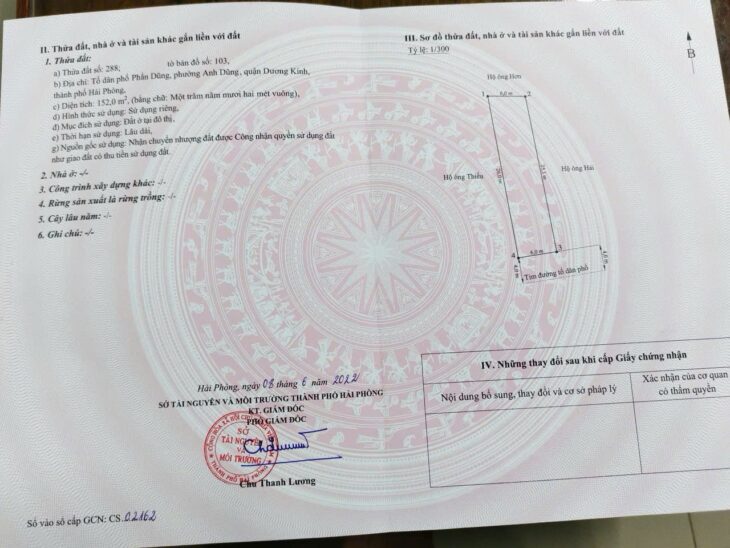 II. Thửa đất, nhà ở và tài sản khác gắn liền với đất
1. Thửa đất:
a) Thửa đất số: 288; tờ bản đồ số: 103,
b) Địa chỉ: Tổ dân phố Phấn Dũng, phường Anh Dũng, quận Dương Kinh,
thành phố Hải Phòng,
c) Diện tích: 152,0 m², (bằng chữ: Một trăm năm mươi hai mét vuông),
d) Hình thức sử dụng: Sử dụng riêng,
đ) Mục đích sử dụng: Đất ở tại đô thị,
e) Thời hạn sử dụng: Lâu dài,
g) Nguồn gốc sử dụng: Nhận chuyển nhượng đất được Công nhận quyền sử dụng đất
như giao đất có thu tiền sử dụng đất.
2. Nhà ở: -/-
3. Công trình xây dựng khác: -/-
4. Rừng sản xuất là rừng trồng: -/-
5. Cây lâu năm: -/-
6. Ghi chú: -/-
Hải Phòng, ngày 08 tháng 6 năm 2022
SỞ TÀI NGUYÊN VÀ MÔI TRƯỜNG THÀNH PHỐ HẢI PHÒNG
KT. GIÁM ĐỐC
PHÓ GIÁM ĐỐC
SỞ
TÀI NGUYÊN
VÀ
MÔI TRƯỜNG
THÀNH PHỐ HẢI PHÒNG
Chu Thanh Lương
Số vào sổ cấp GCN: CS.02162
III. Sơ đồ thửa đất, nhà ở và tài sản khác gắn liền với đất
Tỷ lệ: 1/300
B
Hộ ông Hơn
1 6,0 m 2
Hộ ông Thiều
Hộ ông Hải
4 6,0 m 3
4,0 m
4,0 m
Tim đường tổ dân phố
IV. Những thay đổi sau khi cấp Giấy chứng nhận
Nội dung bổ sung, thay đổi và cơ sở pháp lý
Xác nhận của cơ quan
có thẩm quyền